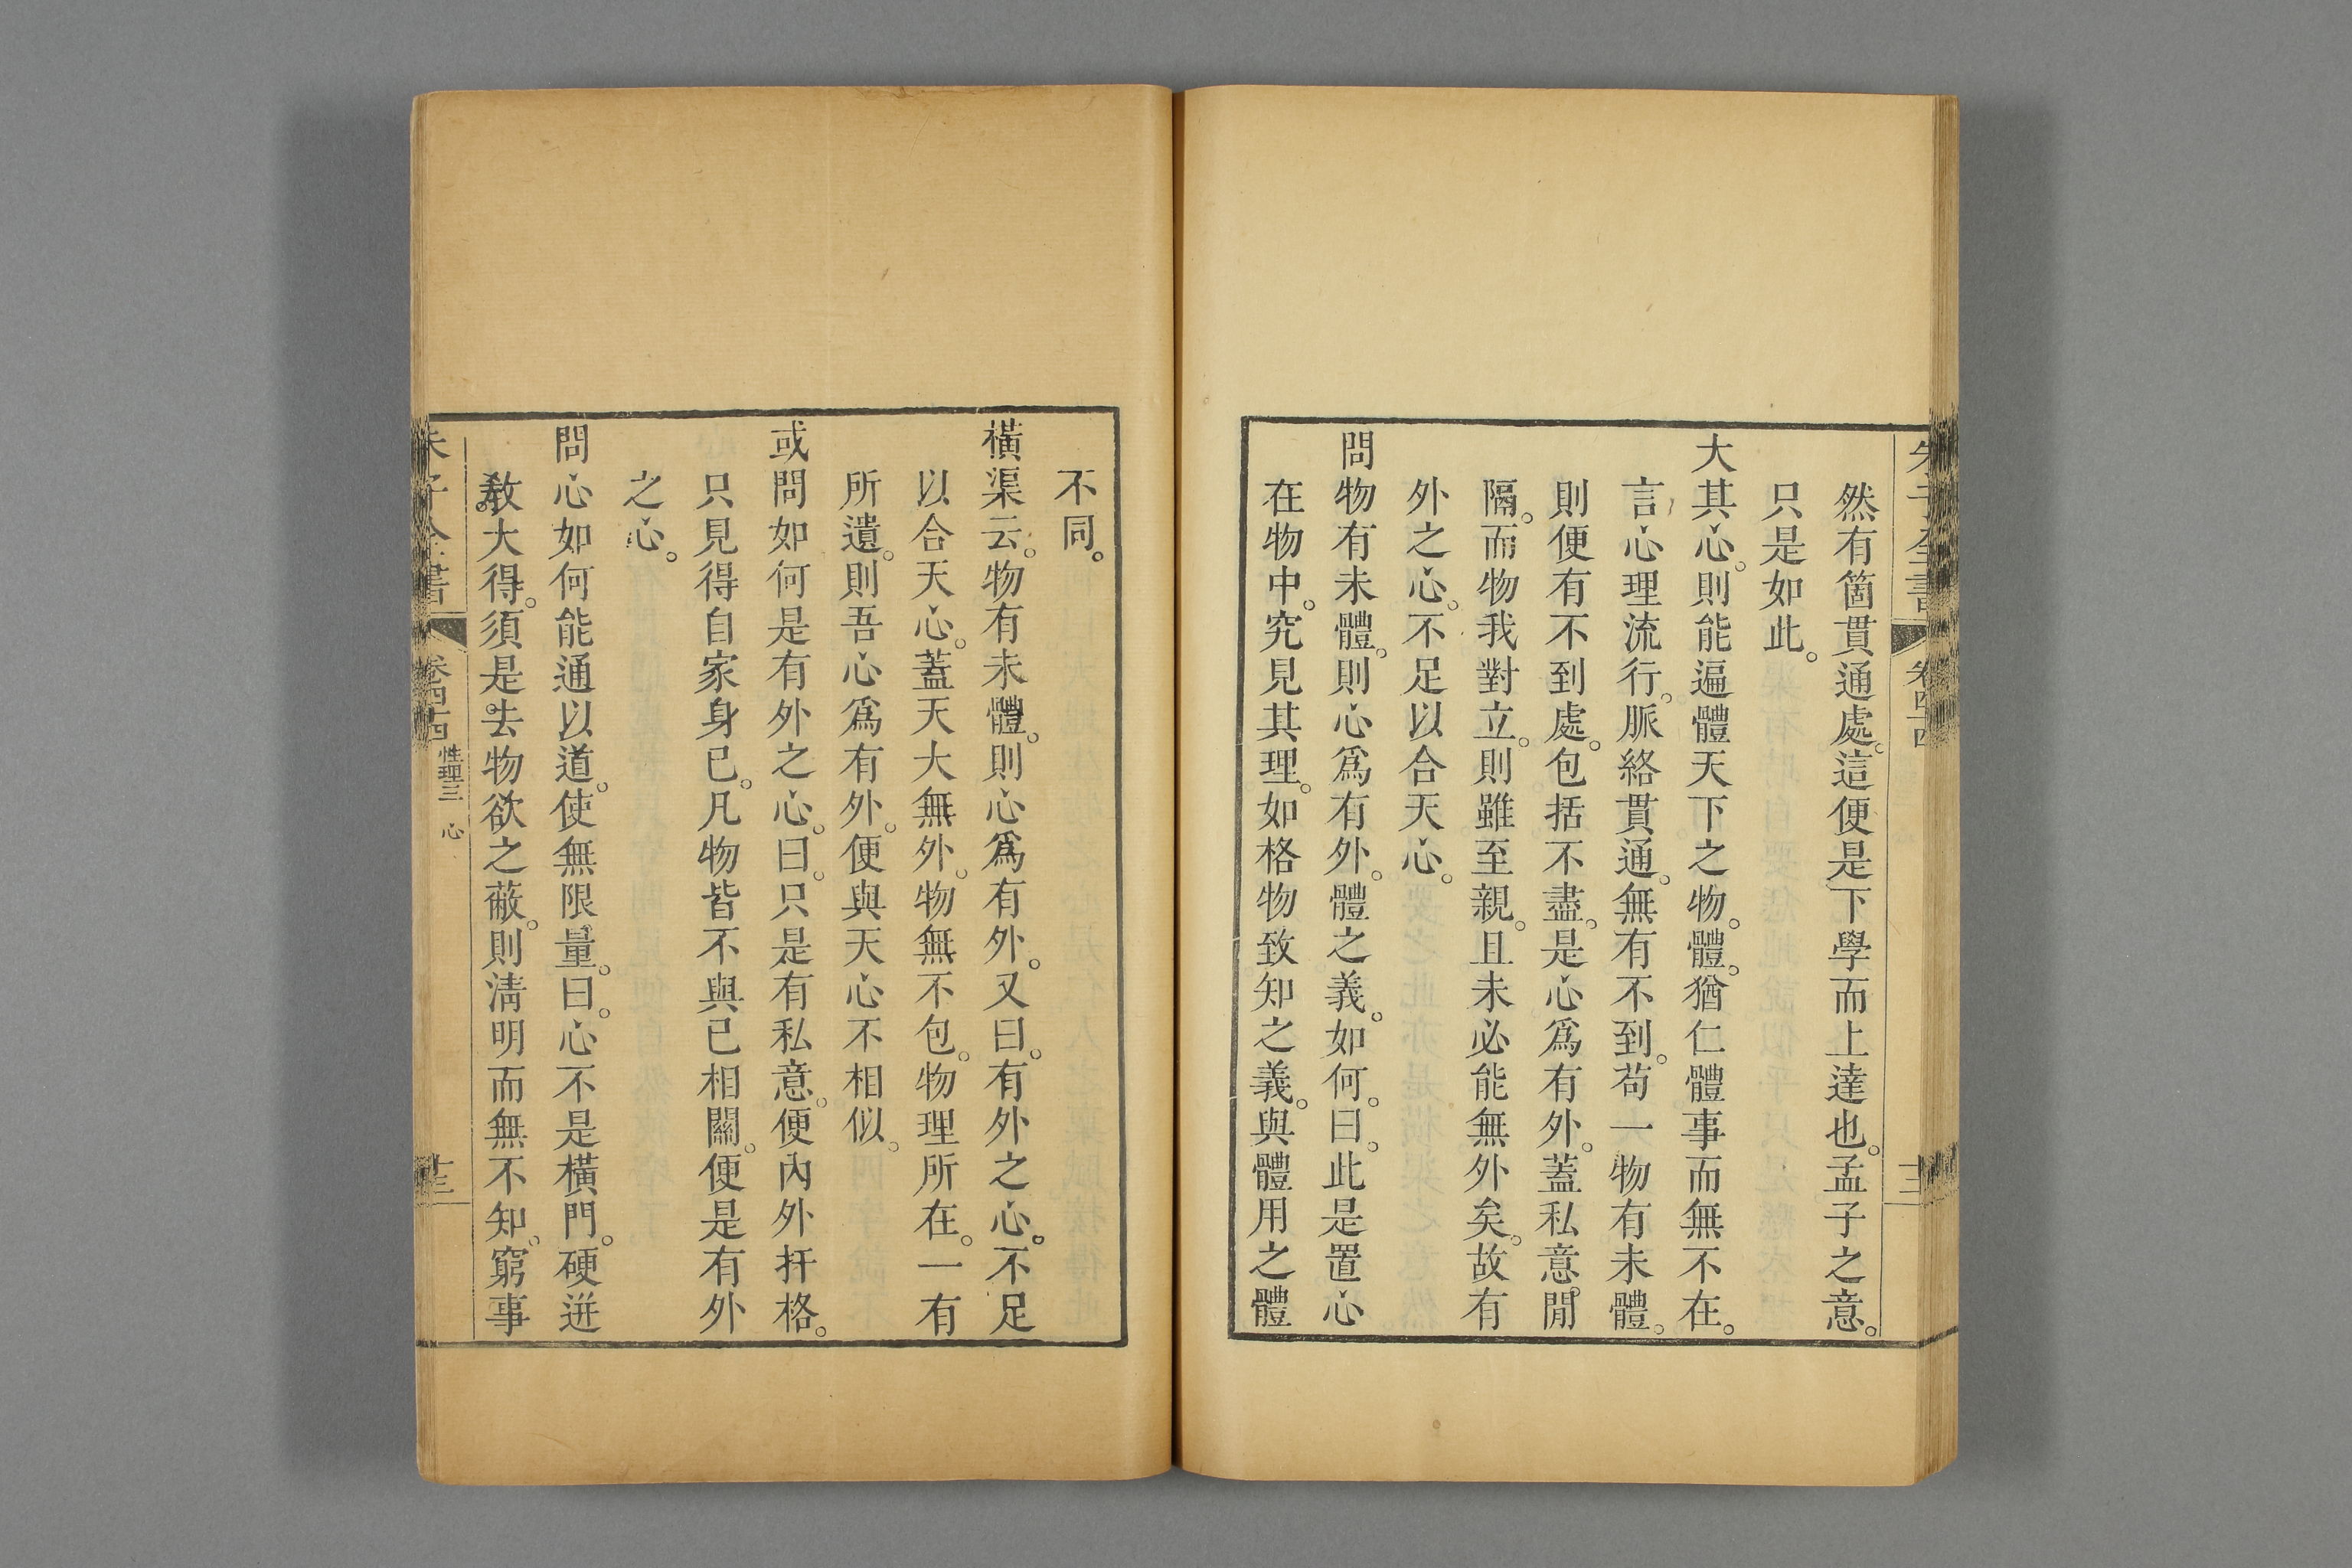 朱子全書 卷四十四
然有箇貫通處。這便是下學而上達也。孟子之意。
只是如此。
大其心。則能遍體天下之物。體。猶仁體事而無不在。
言心理流行。脈絡貫通。無有不到。苟一物有未體。
則便有不到處。包括不盡。是心爲有外。蓋私意。閒
隔。而物我對立。則雖至親。且未必能無外矣。故有
外之心。不足以合天心。
問物有未體。則心爲有外。體之義。如何。曰。此是置心
在物中。究見其理。如格物致知之義。與體用之體
不同。
橫渠云。物有未體。則心爲有外。又曰。有外之心。不足
以合天心。蓋天大無外。物無不包。物理所在。一有
所遺。則吾心爲有外。便與天心不相似。
或問如何是有外之心。曰。只是有私意。便內外扞格。
只見得自家身已。凡物皆不與已相關。便是有外
之心。
問心如何能通以道。使無限量。曰。心不是橫門。硬迸
敎。大得。須是。去物欲之蔽。則淸明而無不知。窮事
朱子全書 卷四十四 性理三 心 十三